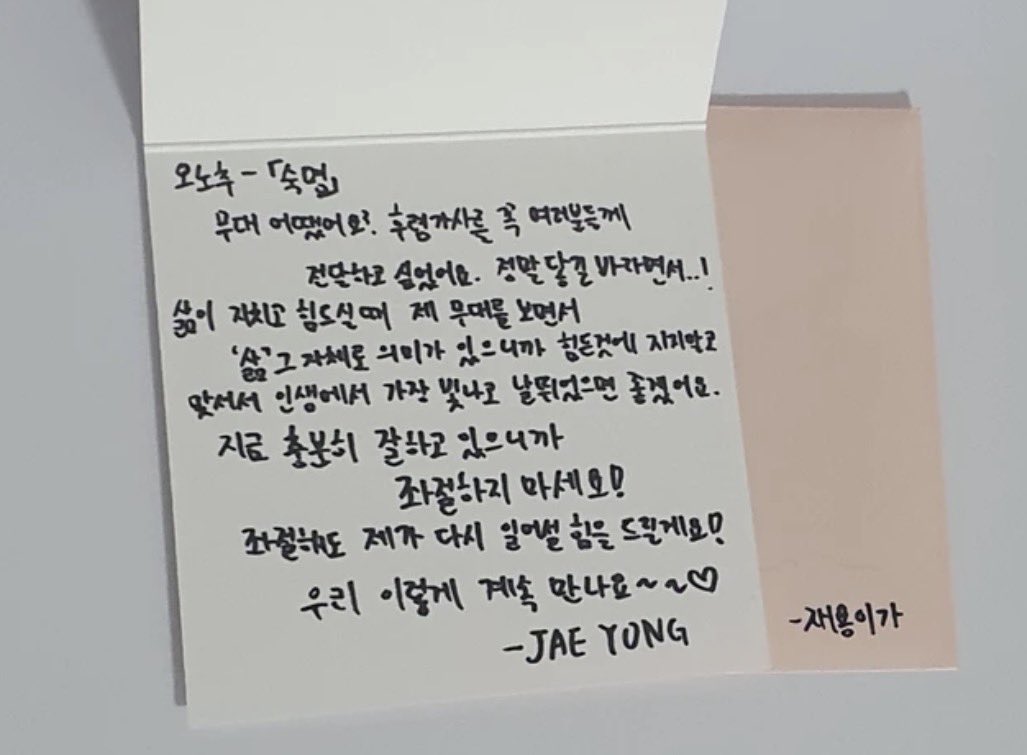 오노추 - 「숙명」
무대 어땠어요? 후렴가사를 꼭 여러분들께
전달하고 싶었어요. 정말 닿길 바라면서..!
삶이 지치고 힘드실 때 제 무대를 보면서
'삶' 그 자체로 의미가 있으니까 힘든것에 지지않고
맞서서 인생에서 가장 빛나고 날뛰었으면 좋겠어요.
지금 충분히 잘하고 있으니까
좌절하지 마세요!
좌절해도 제가 다시 일어설 힘을 드릴게요!
우리 이렇게 계속 만나요~~♡
-JAE YONG
-재용이가